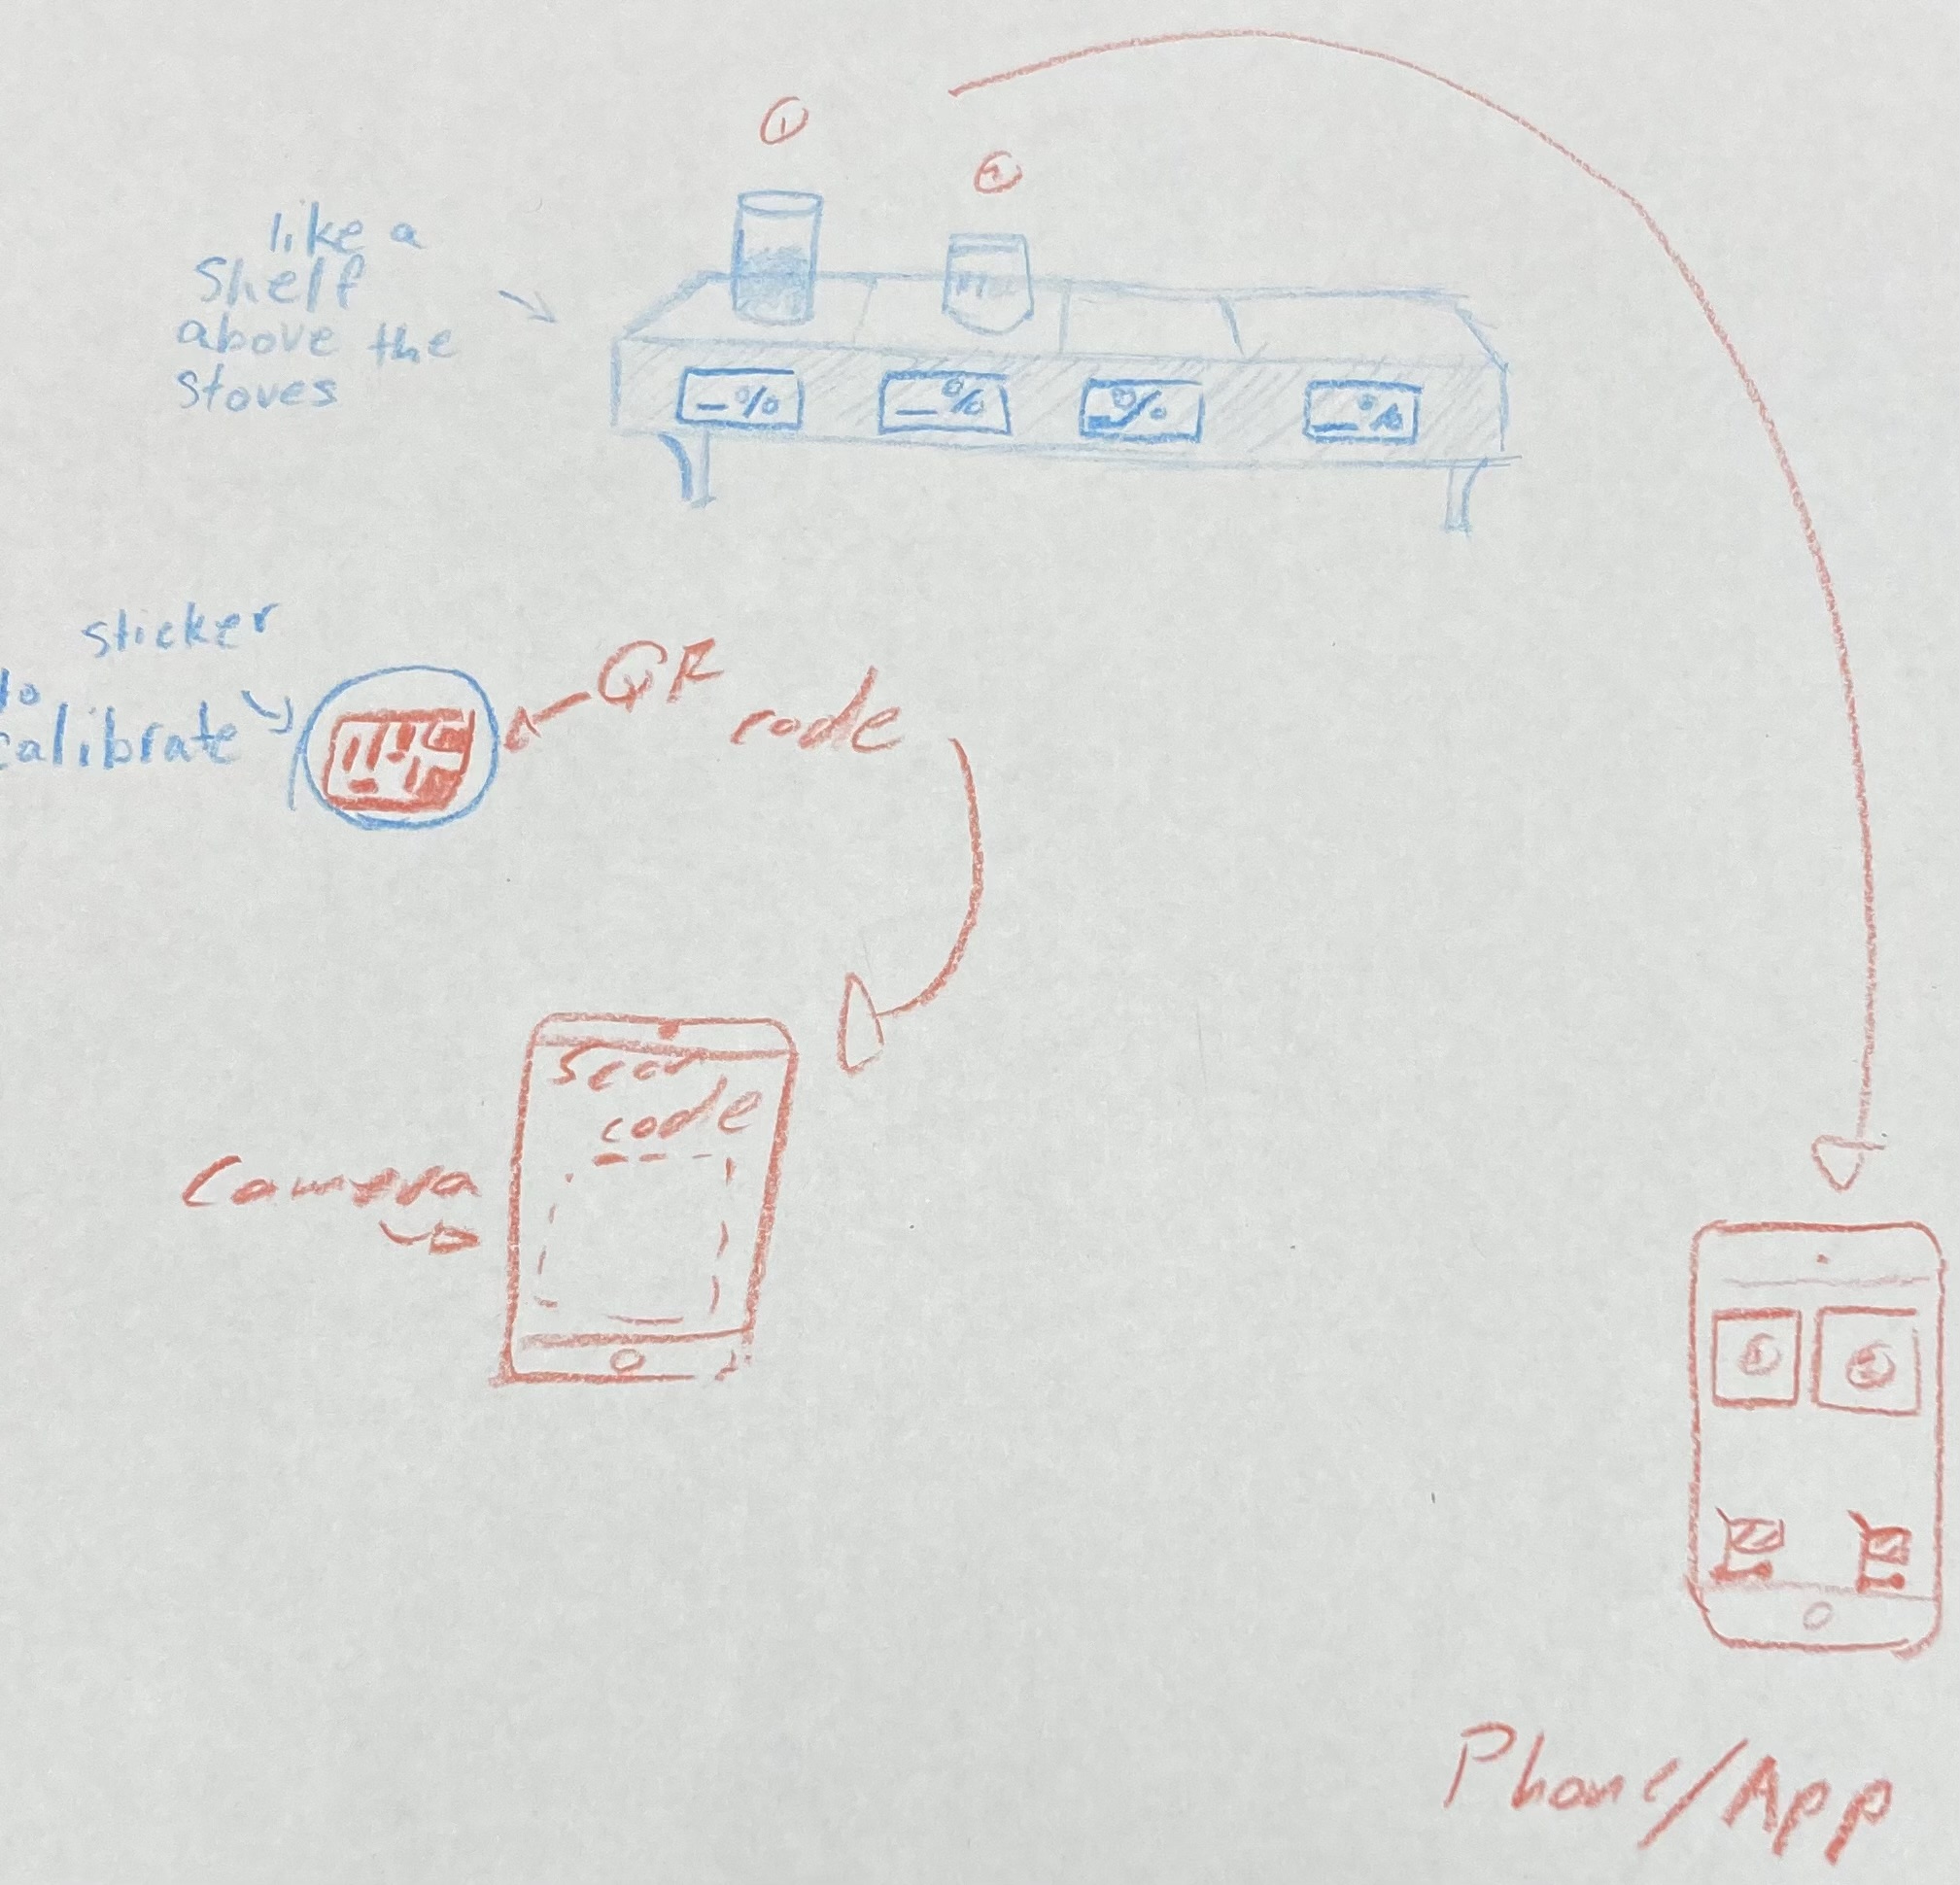 ①
②
like a
Shelf
above the
stoves
_%
_%
_%
_%
sticker
to
calibrate
QR
code
Scan
code
Camera
①
②
Phone/App